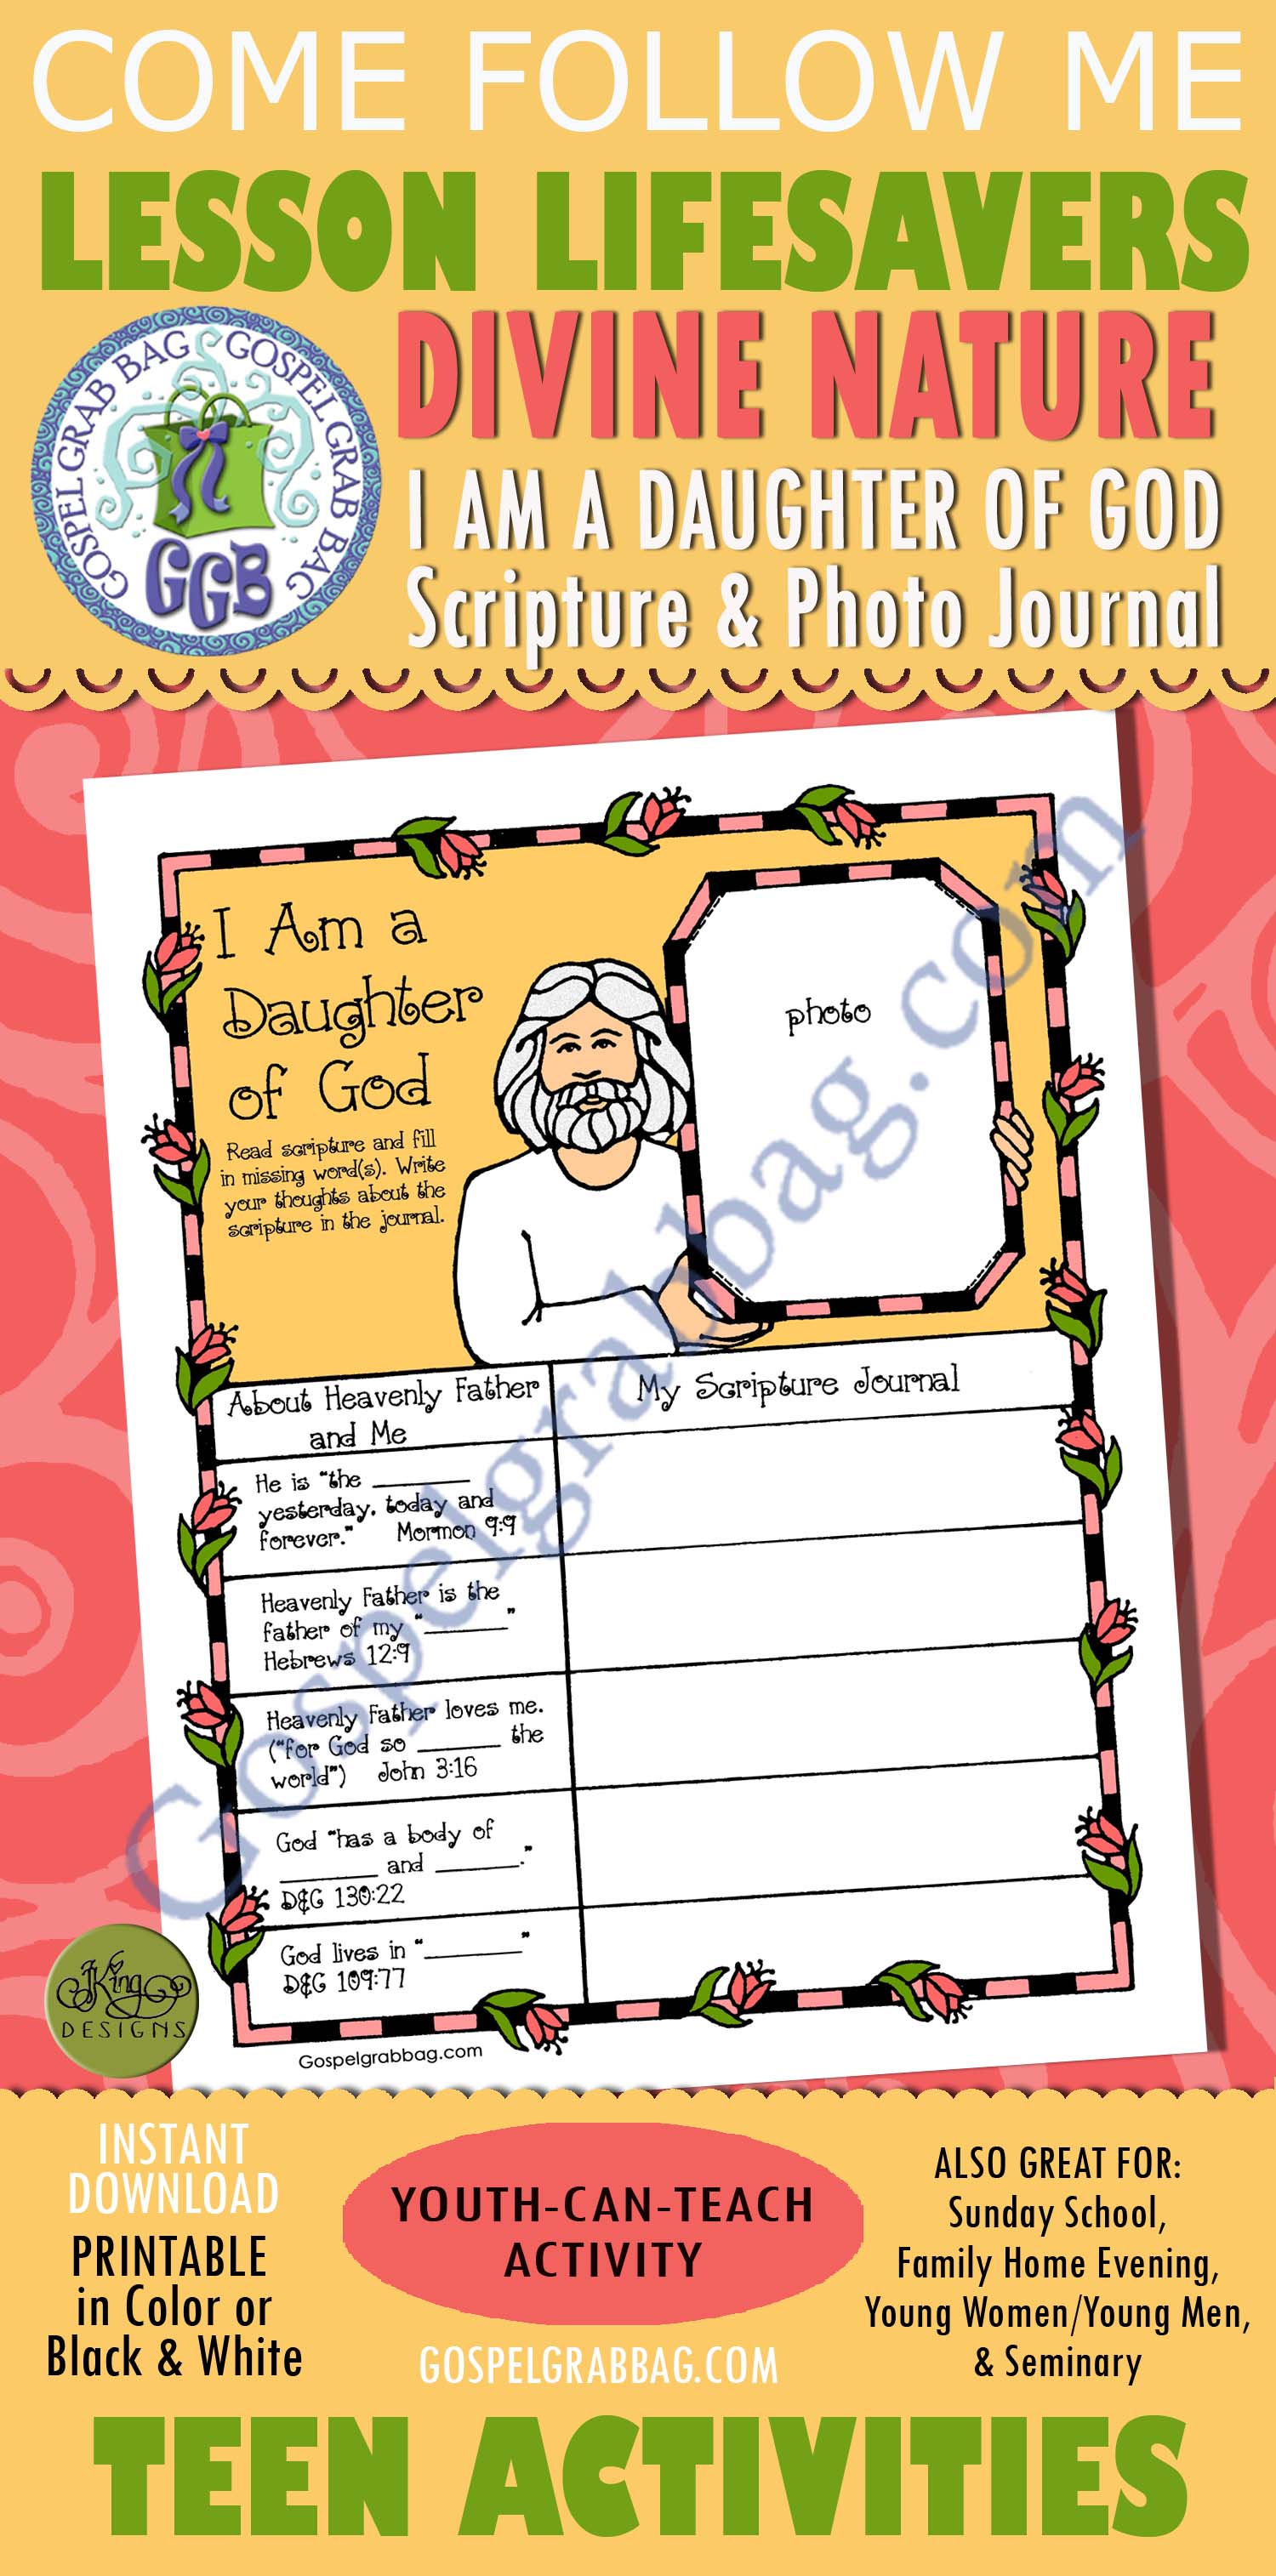 COME FOLLOW ME
LESSON LIFESAVERS
GOSPEL GRAB BAG GOSPEL GRAB BAG
GGB
DIVINE NATURE
I AM A DAUGHTER OF GOD
Scripture & Photo Journal
I Am a
Daughter
of God
Read scripture and fill
in missing word(s). Write
your thoughts about the
scripture in the journal.
photo
About Heavenly Father
and Me
My Scripture Journal
He is "the ________
yesterday, today and
forever." Mormon 9:9
Heavenly Father is the
father of my "_______"
Hebrews 12:9
Heavenly Father loves me.
("for God so _______ the
world") John 3:16
God "has a body of
________ and _______."
D&C 130:22
God lives in "________"
D&C 109:77
Gospelgrabbag.com
Gospelgrabbag.com
JKing
DESIGNS
INSTANT
DOWNLOAD
PRINTABLE
in Color or
Black & White
YOUTH-CAN-TEACH
ACTIVITY
GOSPELGRABBAG.COM
ALSO GREAT FOR:
Sunday School,
Family Home Evening,
Young Women/Young Men,
& Seminary
TEEN ACTIVITIES